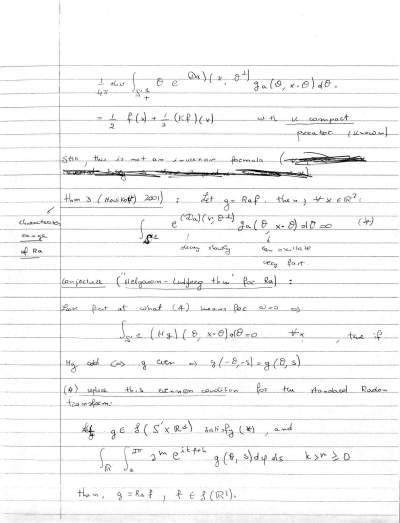 1/4π div ∫_{S^1} θ e^{(Da)(x, θ^⊥)} g_a(θ, x·θ) dθ.
= 1/2 f(x) + 1/2 (Kf)(x) with K compact
operator (known)
Still, this is not an inversion formula
thm 3 (Novikov 2001) : Let g = Raf. then, ∀ x ∈ R²:
characterizes
range
of Ra
∫_{S^1} e^{(Da)(x, θ^⊥)} g_a(θ, x·θ) dθ = 0 (*)
decay slowly can oscillate
very fast.
conjecture ("Helgason-Ludwig thm" for Ra) :
look first at what (*) means for a=0 ⇒
∫_{S^1} (Hg)(θ, x·θ) dθ = 0 ∀x, true if
Hg odd ⇔ g even ⇒ g(-θ,-s) = g(θ,s)
(*) replace this evenness condition for the standard Radon
transform.
If g ∈ S(S^1 × R^1) satisfy (*), and
∫_R ∫_0^{2π} s^m e^{ikφ} g(θ, s) dφ ds k > m ≥ 0
then, g = Raf, f ∈ S(R²).